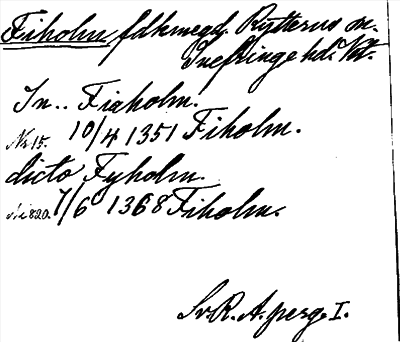 Fiholm, fdkmegd. Rytterns sn.
Snefringe hd. Vstm.
In.. Fiæholm.
Nr 15. 10/4 1351 Fiholm.
dicto Fyholm.
Nr 820. 7/6 1368 Fiholm.
Sv. R. A. perg. I.